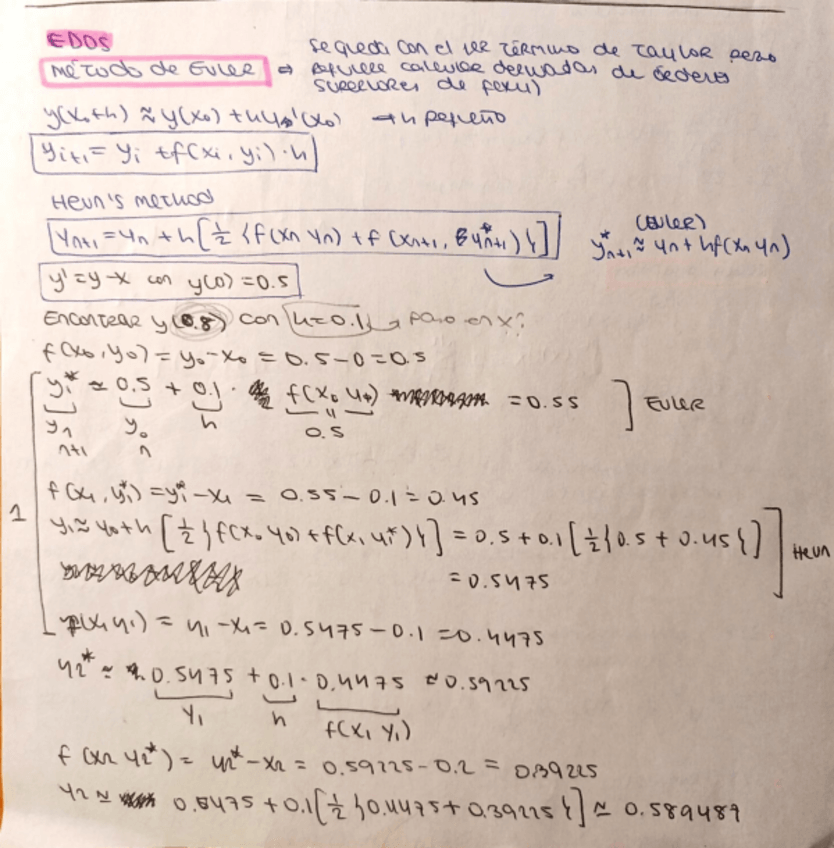 EDOS
Método de Euler ⇒ Se queda con el 1er término de Taylor pero
requiere calcular derivadas de órdenes
superiores de f(x,y)
y(x₀+h) ≈ y(x₀) + hy'(x₀) → h pequeño
yᵢ₊₁ = yᵢ + f(xᵢ, yᵢ)·h
Heun's method
yₙ₊₁ = yₙ + h[½{f(xₙ yₙ) + f(xₙ₊₁, y*ₙ₊₁)}]
(Euler)
y*ₙ₊₁ ≈ yₙ + hf(xₙ yₙ)
y' = y-x con y(0) = 0.5
Encontrar y(0.8) con h=0.1 → paso en x?
f(x₀, y₀) = y₀-x₀ = 0.5-0 = 0.5
y₁* ≈ 0.5 + 0.1 · f(x₀ y₀) = 0.55 ] EULER
yₙ y₀ h 0.5
n+1 n
f(x₁, y₁*) = y₁*-x₁ = 0.55-0.1 = 0.45
1
y₁ ≈ y₀+h[½{f(x₀ y₀) + f(x₁ y₁*)}] = 0.5+0.1[½{0.5 + 0.45}] Heun
= 0.5475
f(x₁ y₁) = y₁-x₁ = 0.5475-0.1 = 0.4475
y₂* ≈ 0.5475 + 0.1 · 0.4475 ≈ 0.59225
y₁ h f(x₁ y₁)
f(x₂ y₂*) = y₂*-x₂ = 0.59225-0.2 = 0.39225
y₂ ≈ 0.5475 + 0.1[½{0.4475 + 0.39225}] ≈ 0.589487